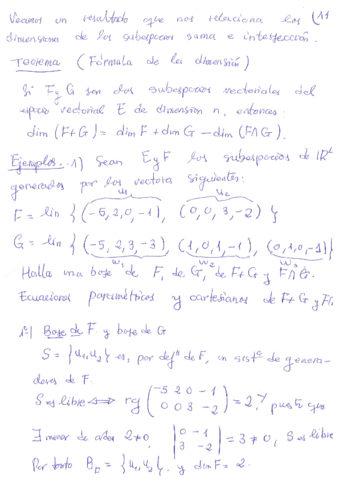 Veamos un resultado que nos relaciona las (11
dimensiones de los subespacios suma e intersección.
Teorema (Fórmula de la dimensión)
Si F y G son dos subespacios vectoriales del
espacio vectorial E de dimensión n, entonces:
dim (F+G) = dim F + dim G - dim (F∩G).
Ejemplos. 1) Sean E y F los subespacios de R⁴
generados por los vectores siguientes:
u₁ u₂
F = lin { (-5,2,0,-1), (0,0,3,-2) }
G = lin { (-5,2,3,-3), (1,0,1,-1), (0,1,0,-1) }
w₁ w₂ w₃
Halla una base de F, de G, de F+G y F∩G.
Ecuaciones paramétricas y cartesianas de F+G y F∩
1º) Base de F y base de G
S = {u₁, u₂} es, por defº de F, un sistº de genera-
dores de F.
S es libre ⟺ rg ( -5 2 0 -1
0 0 3 -2 ) = 2, y puesto que
∃ menor de orden 2 ≠ 0, | 0 -1
3 -2 | = 3 ≠ 0, S es libre
Por tanto B_F = {u₁, u₂} y dim F = 2.